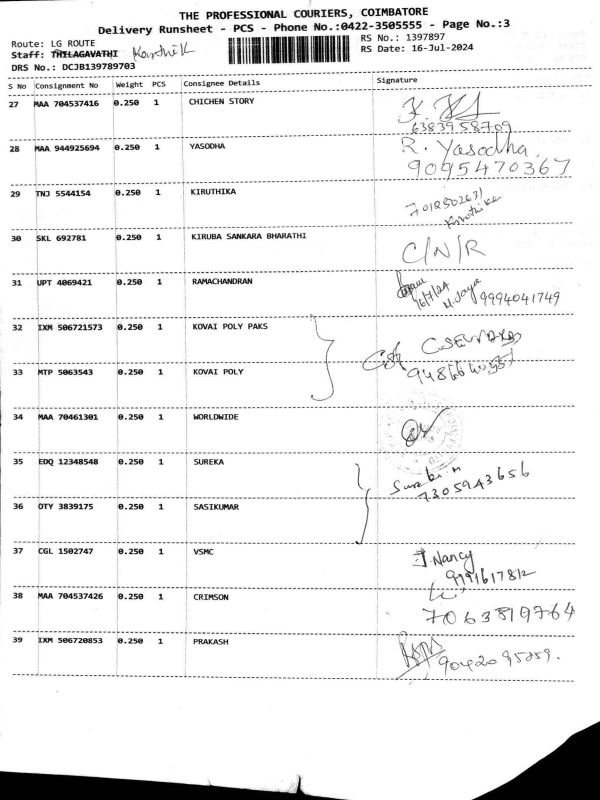 THE PROFESSIONAL COURIERS, COIMBATORE
Delivery Runsheet - PCS - Phone No.:0422-3505555 - Page No.:3
Route: LG ROUTE
RS No.: 1397897
Staff: THILAGAVATHI Karthik
RS Date: 16-Jul-2024
DRS No.: DCJB139789703
S No Consignment No Weight PCS Consignee Details Signature
27 MAA 704537416 0.250 1 CHICHEN STORY
6383958709
28 MAA 944925694 0.250 1 YASODHA R. Yasodha.
9095470367
29 TNJ 5544154 0.250 1 KIRUTHIKA
30 SKL 692781 0.250 1 KIRUBA SANKARA BHARATHI C/N/R
31 UPT 4069421 0.250 1 RAMACHANDRAN
16/7/24 M. Jaya 9994041749
32 IXM 506721573 0.250 1 KOVAI POLY PAKS
33 MTP 5063543 0.250 1 KOVAI POLY
34 MAA 70461301 0.250 1 WORLDWIDE
35 EDQ 12348548 0.250 1 SUREKA
7305943656
36 OTY 3839175 0.250 1 SASIKUMAR
37 CGL 1502747 0.250 1 VSMC J. Nancy
9791617812
38 MAA 704537426 0.250 1 CRIMSON
7063819764
39 IXM 506720853 0.250 1 PRAKASH